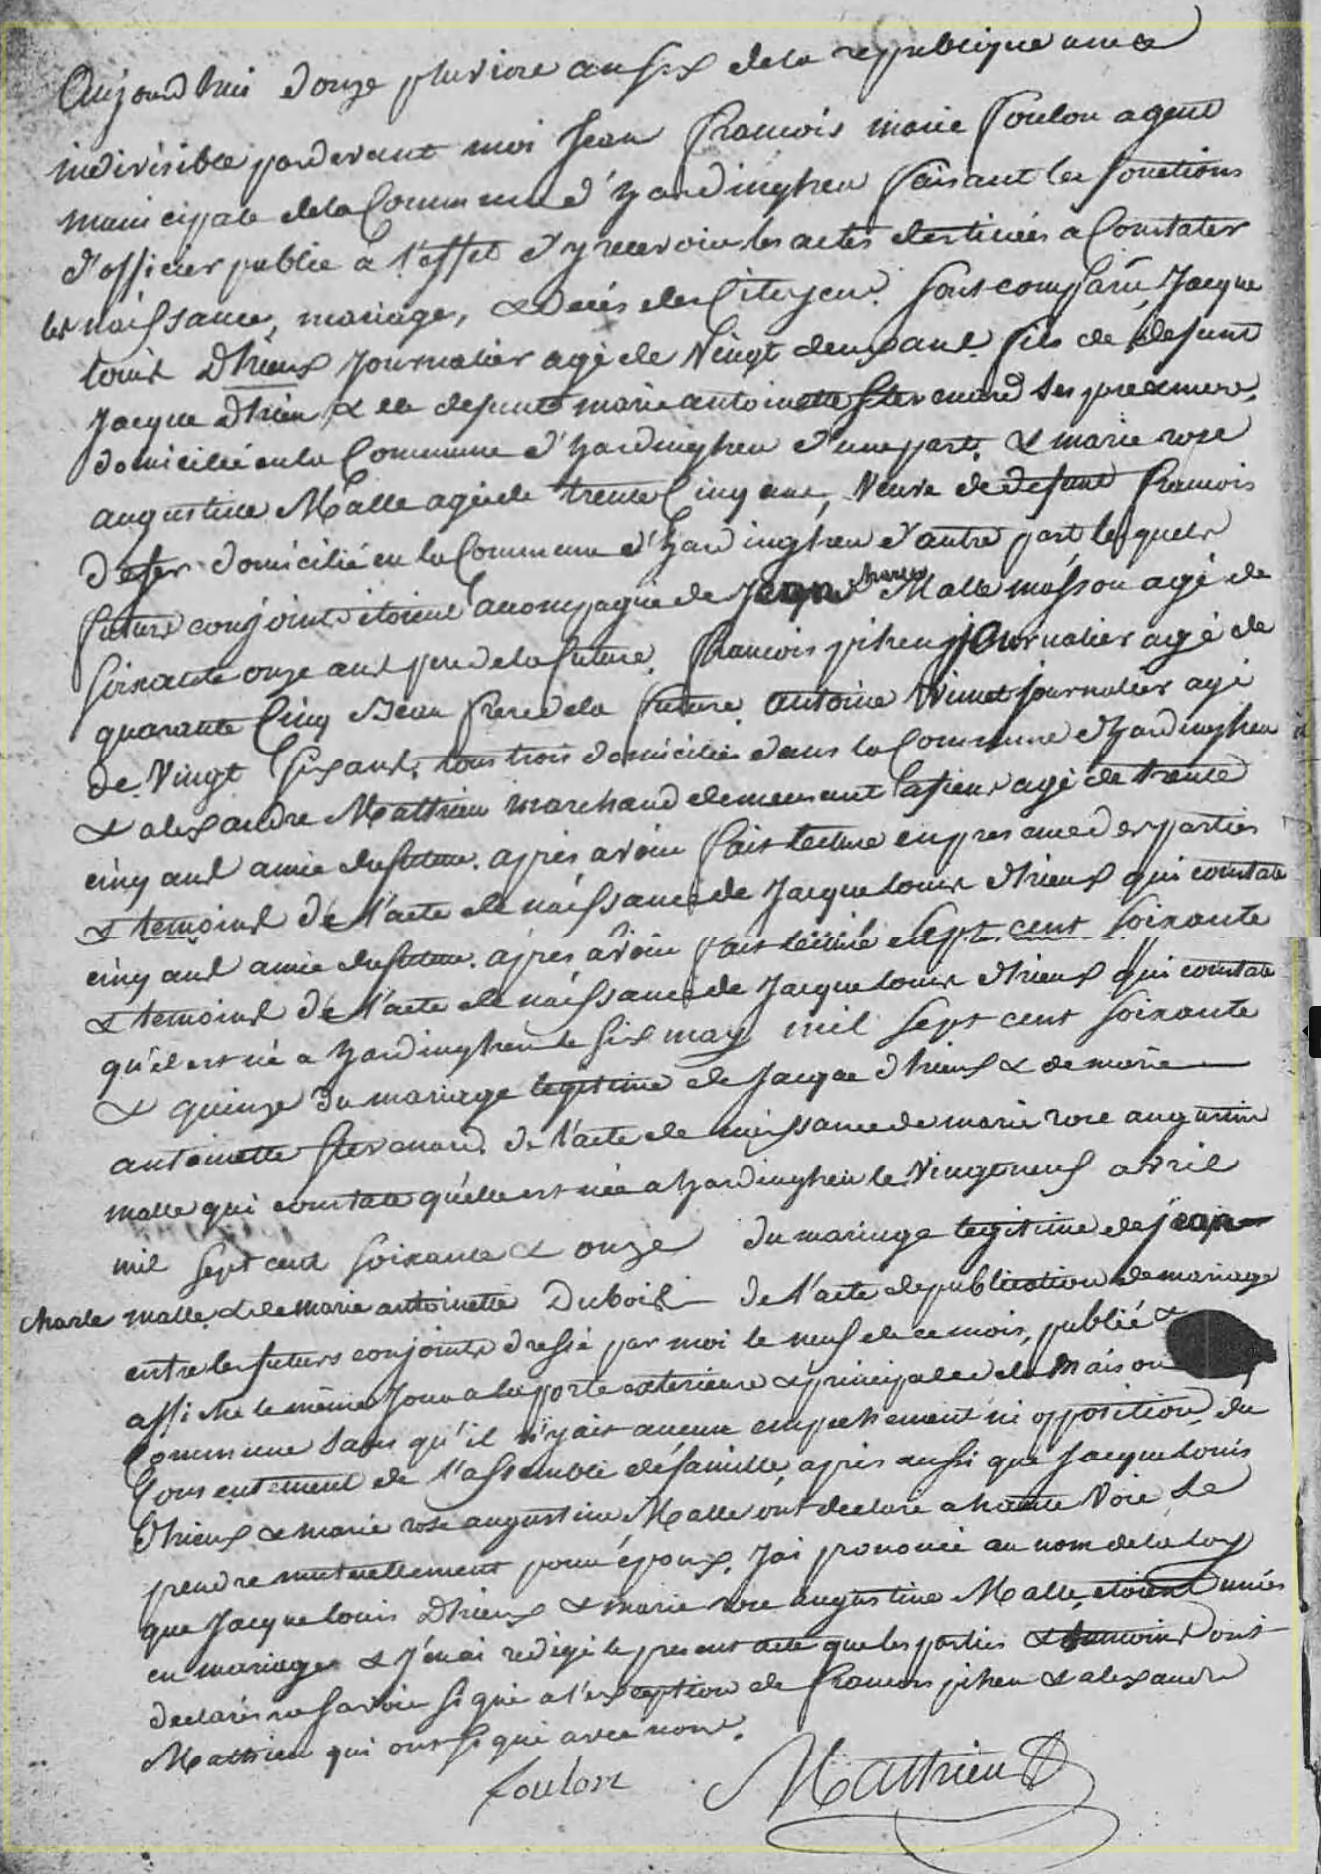 Aujourd'hui Douze pluviose an six de la republique une &
indivisible pardevant moi Jean francois marie foulon agent
municipale de la Commune d'hardinghen faisant les fonctions
d'officier public à l'effet d'y recevoir les actes destinées a Constater
les naissance, mariage, & Décès des Citoyens. sont comparu, Jacque
louis Dhieux Journalier agé de vingt deux ans. fils de defunt
Jacque dhieu & de defunte marie antoinette domiciliée en la Commune d'hardinghen d'une part. & marie rose
augustine Malle agée de trente Cinq ans, Veuve de defunt francois
domicilié en la Commune d'hardinghen d'autre part lesquels
futurs conjoints étoient accompagnie de Jean charles Malle masson agé de
soixante onze ans pere de la future. francois pihen journalier agé de
quarante Cinq Beau frere de la future. antoine journalier agé
de Vingt six ans. tous trois domiciliés dans la Commune d'hardinghen
& alexandre Matthieu marchand demeurant agé de trente
cinq ans amie du future. après avoir fait lecture en presence des parties
& temoins De l'acte de naissance de Jacque louis dhieux qui constate
cinq ans amie du future. après avoir fait sept cent soixante
& temoins De l'acte de naissance de Jacque louis dhieux qui constate
qu'il est né a hardinghen le six may mil sept cent soixante
& quinze du mariage legitime de Jacque dhieux & de marie
antoinette de l'acte de naissance de marie rose augustine
malle qui constate quélle est née a hardinghen le Vingt neuf avril
mil sept cent soixante & onze du mariage legitime de jean
charle malle & de marie antoinette Dubois de l'acte de publication de mariage
entre les futurs conjoints dressé par moi le neuf de ce mois, publié &
affiché le même Jour a la porte exterieure & principale de la Maison
Commune sans qu'il n'y ait aucune empechement ni opposition, du
Consentement de l'assemblé de famille, après aussi que Jacque louis
Dhieux & marie rose augustine Malle ont declaré a haute Voie se
prendre mutuellement pour époux, J'ai prononcé au nom de la loy
que Jacque louis Dhieux & marie rose augustine Malle etoient unies
en mariage & J'en ai redigé le present acte que les parties & temoins ont
declarés ne savoir signé a l'exception de francois pihen & alexandre
Matthieu qui ont signé avec nous.
foulon Matthieu